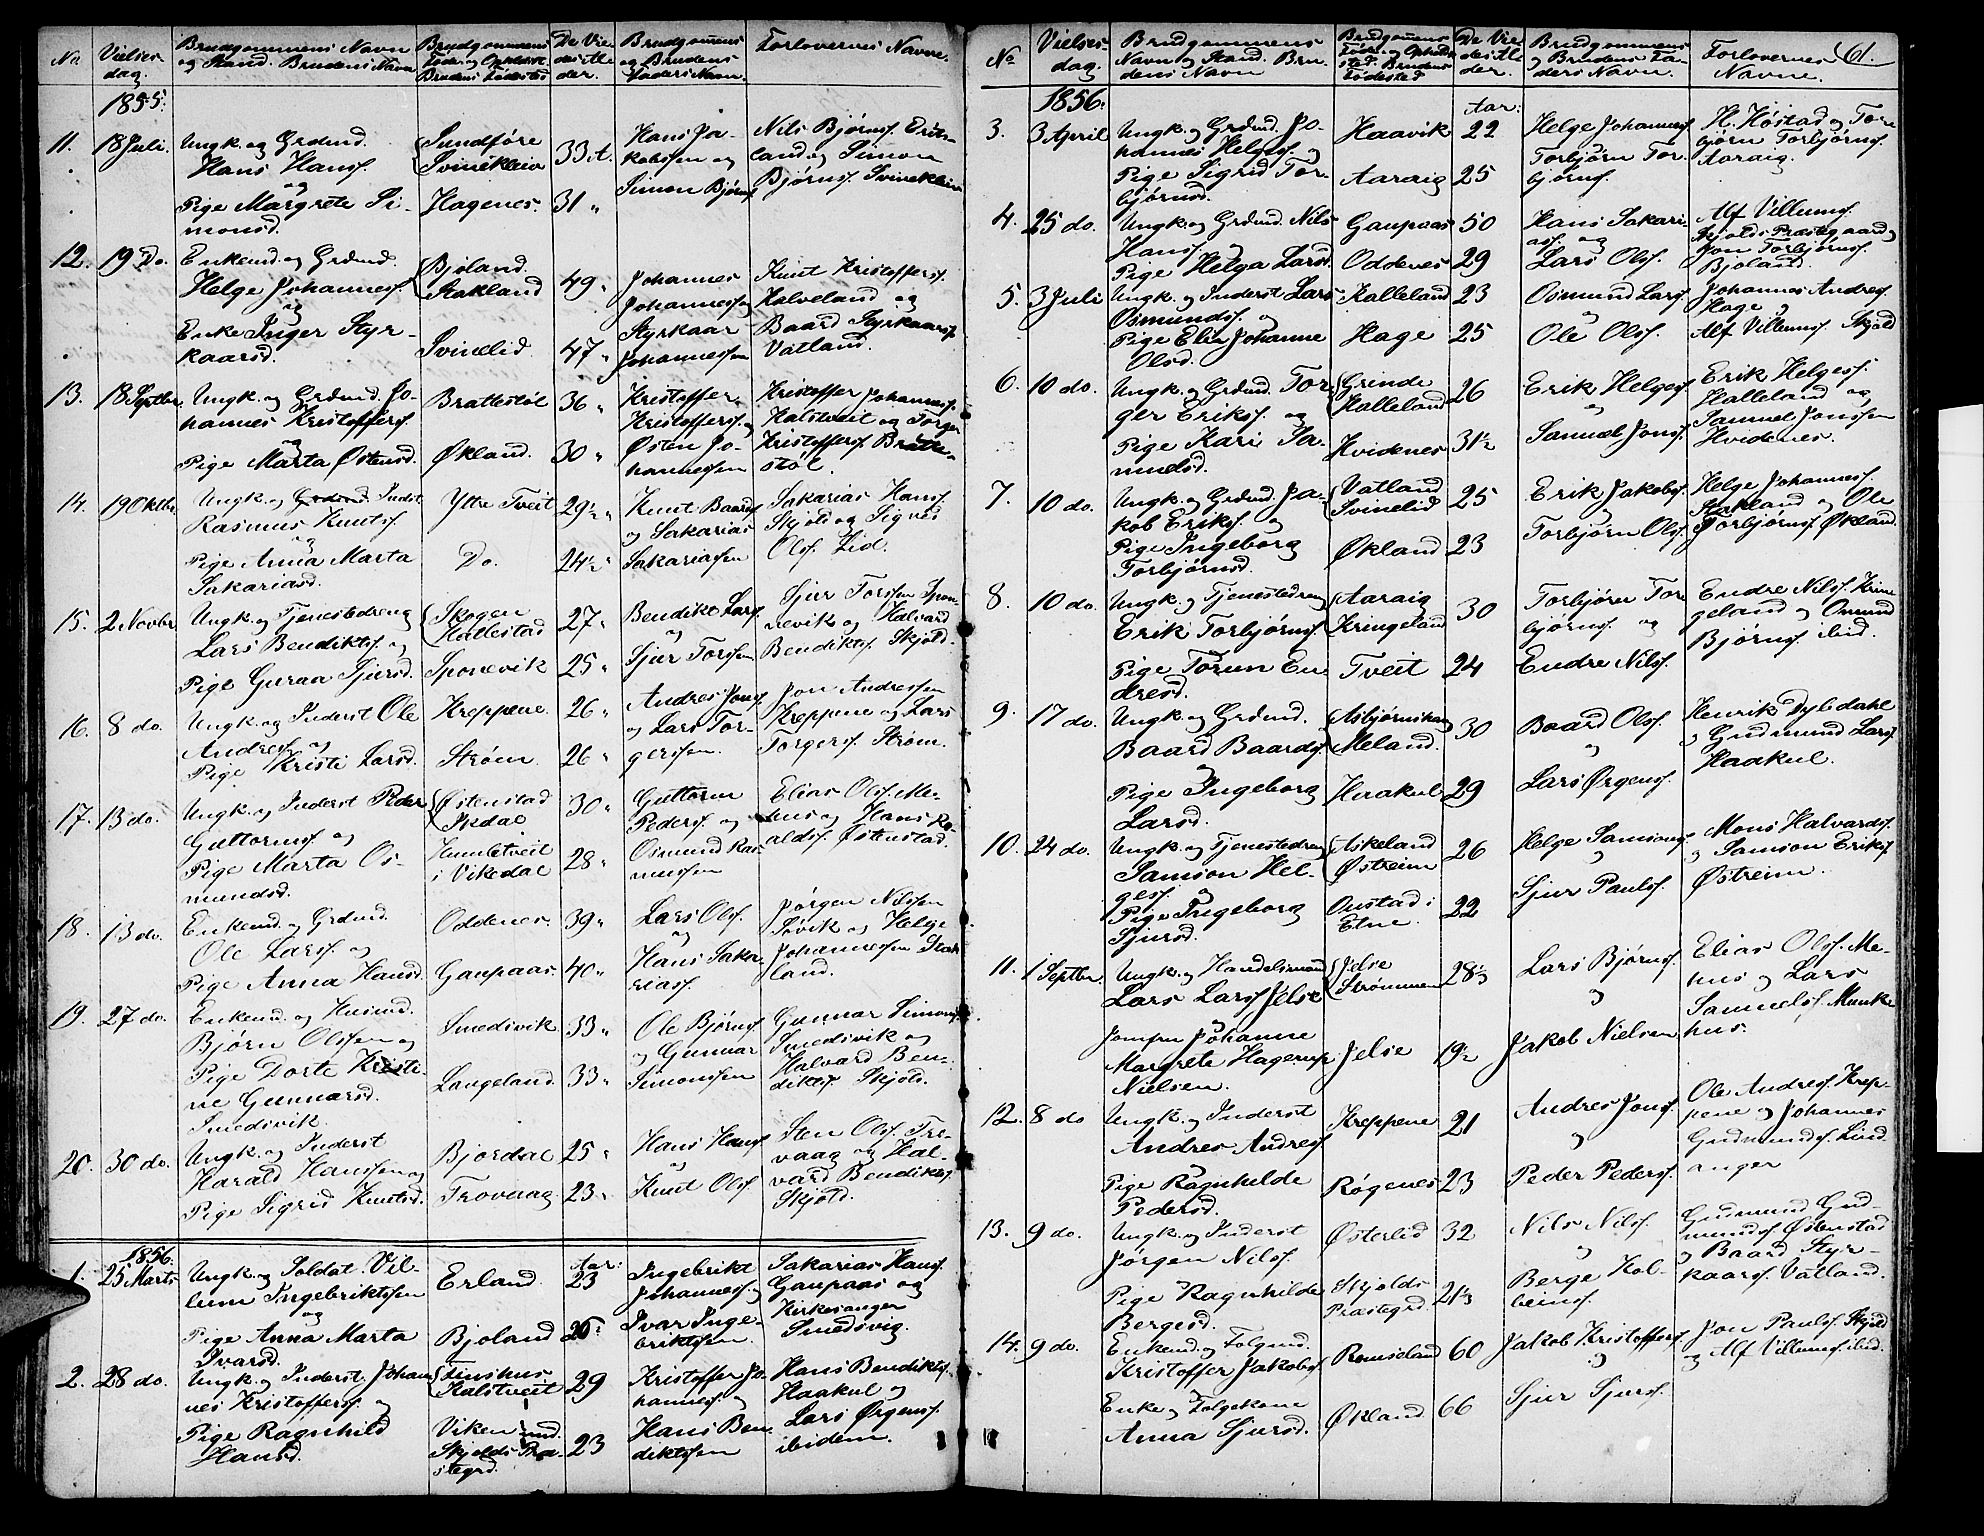 No
Vielses-
dag.
Brudgommens Navn
og Stand. Brudens Navn
Brudgommens
Føde- og Opholdsst.
Brudens Fødested
De Vie-
des Al-
der.
Brudgommens
og Brudens
Faders Navn.
Forlovernes Navne.
1855.
11. 18 Juli. Ungk. og Grdmd.
Hans Hans.
og
Pige Margrete Si-
monsd.
Sundføre
Svinekleiv
Hagenes.
33 A.
31 "
Hans Ja-
kobssen og
Simon Bjørns.
Nils Bjørns. Erøs-
land og Simon
Bjørns. Svinekleiv
12. 19 Do. Enkemd. og Grdmd.
Helge Johannes.
og
Enke Inger Styr-
kaarsd.
Bjoland.
Stakland
Svinelid
49 "
47 "
Johannes
Johannessen og
Styrkaar
Johannessen
Knut Kristoffers.
Halveland og
Baard Styrkaars.
Vatland.
13. 18 Septbr. Ungk. og Grdmd. Jo-
hannes Kristoffers.
og
Pige Marta Østensd.
Brattestøl
Økland.
36 "
30 "
Kristoffer
Kristoffers. og
Østen Jo-
hannessen
Kristoffer Johannes.
Kalstveit og Torger
Kristoffers. Bratte-
støl.
14. 19 Oktbr. Ungk. og Inderst
Rasmus Knuts.
og
Pige Anna Marta
Sakariasd.
Ytre Tveit
Do.
29½ "
24½ "
Knut Baards.
og Sakarias
Sakariassen
Sakarias Hans.
Skjold og Sigved
Ols. Lid.
15. 2 Novbr. Ungk. og Tjenestedreng
Lars Bendikts. og
Pige Guraa Sjursd.
Skogen
Hallestad
Sponevik
27 "
25 "
Bendikt Lars.
og
Sjur Torssen
Sjur Torssen Spon-
nevik og Halvard
Bendikts. Skjold.
16. 8 do. Ungk. og Inderst Ole
Andres. og
Pige Kristi Larsd.
Kreppene
Strøm.
26 "
26 "
Andres Jons.
og Lars Tor-
gerssen.
Jon Andressen
Kreppene og Lars
Torgers. Strøm.
17. 13 do. Ungk. og Inderst Peder
Guttorms. og
Pige Marta Os-
mundsd.
Østenstad
Ikdal
Humletveit
i Vikedal
30 "
28 "
Guttorm
Peders. og
Osmund Ras-
mussen
Elias Ols. Me-
hus og Hans Ro-
alds. Østenstad.
18. 13 do. Enkemd. og Grdmd.
Ole Lars. og
Pige Anna Hansd.
Oddenes.
Gaupaas.
39 "
40 "
Lars Ols.
og
Hans Saka-
rias.
Jørgen Nilssen
Søvik og Helge
Johannessen Stak-
land.
19. 27 do. Enkemd. og Husmd.
Bjørn Olssen og
Pige Dorte Kristi-
ne Gunnarsd.
Smedsvik.
Smedsvik
Langeland.
33 "
33 "
Ole Bjørns.
og Gunnar
Simonssen
Gunnar Simons.
Smedsvik og
Halvard Ben-
dikts. Skjold.
20. 30 do. Ungk. og Inderst
Harald Hanssen og
Pige Sigrid Knutsd.
Bjordal
Trovaag
25 "
23 "
Hans Hans.
og
Knut Ols.
Sten Ols. Tro-
vaag og Hal-
vard Bendikts.
Skjold.
1856.
1. 25 Marts Ungk. og Soldat Vil-
lum Ingebriktssen
og
Pige Anna Marta
Ivarsd.
Erland.
Bjoland
Aar:
23
26
Ingebrikt
Johannes. og
Ivar Inge-
briktssen.
Sakarias Hans.
Gaupaas og
Kirkesanger
Smedsvig.
2. 28 do. Ungk. og Inderst Johan-
nes Kristoffers. og
Pige Ragnhild
Hansd.
Finshus
Kalstveit
Viken und.
Skjolds Præ-
stegrd.
29
23
Kristoffer Jo-
hannes. og
Hans Ben-
diktssen
Hans Bendikts.
Haakul og
Lars Ørgens.
ibidem.
61.
No
Vielses-
dag.
Brudgommens
Navn og Stand. Bru-
dens Navn
Brudgommens
Føde- og Opholds-
sted. Brudens
Fødested
De Vie-
des Al-
der.
Brudgommens
og Brudens Fa-
ders Navn.
Forlovernes
Navne.
1856.
Aar:
3. 3 April Ungk. og Grdmd. Jo-
hannes Helges. og
Pige Sigrid Tor-
bjørnsd.
Haavik
Aaraig
22
25
Helge Johannes.
Torbjørn Tor-
bjørns.
H. Høistad og Tor-
bjørn Torbjørns.
Aaraig.
4. 25 do. Ungk. og Grdmd. Nils
Hans. og
Pige Helga Larsd.
Gaupaas
Oddenes
50
29
Hans Sakari-
as. og
Lars Ols.
Alf Villums.
Skjolds Præstegaard og
Jon Torbjørns.
Bjoland.
5. 3 Juli Ungk. og Inderst Lars
Osmunds. og
Pige Elen Johanne
Olsd.
Halleland
Hage
23
25
Osmund Lars.
og
Ole Ols.
Johannes Andres.
Hage og
Alf Villums. Skjold
6. 10 do. Ungk. og Grdmd. Tor-
ger Eriks. og
Pige Kari Sa-
muelsd.
Grinde
Halleland
Hvidenes
26
31½
Erik Helges.
og
Samuel Jons.
Erik Helges.
Halleland og
Samuel Jonssen
Hvidenes.
7. 10 do. Ungk. og Grdmd. Ja-
kob Eriks. og
Pige Ingeborg
Torbjørnsd.
Vatland
Svinelid
Økland
25
23
Erik Jakobs.
og
Torbjørn Ols.
Helge Johannes.
Stakland og Ole
Torbjørns. Økland.
8. 10 do. Ungk. og Tjenestedreng
Erik Torbjørns.
Pige Torun En-
dresd.
Aaraig
Kringeland
Tveit
30
24
Torbjørn Tor-
bjørns. og
Endre Nils.
Endre Nils. Krin-
geland og Omund
Bjørns. ibid.
9. 17 do. Ungk. og Grdmd.
Baard Baards.
og
Pige Ingeborg
Larsd.
Asbjørnshaug
Meland.
Haakul
30
29
Baard Ols.
og
Lars Ørgens.
Henrik Dybdahl
og Gudmund Lars.
Haakul.
10. 24 do. Ungk. og Tjenestedreng
Samson Hel-
ges. og
Pige Ingeborg
Sjursd.
Askeland
Østreim
Onstad i
Etne.
26
22
Helge Samsons.
og
Sjur Pauls.
Mons Halvards.
og Samson Eriks.
Østreim.
11. 1 Septbr. Ungk. og Handelsmand
Lars Lars. Jelse
og
Jomfru Johanne
Margrete Hagerup
Nielsen.
Jelse
Strømmen
Jelse
28⅓
19½
Lars Bjørns.
og
Jakob Nielsen
Elias Ols. Me-
hus og Lars
Samuels. Munke-
hus.
12. 8 do Ungk. og Inderst
Andres Andres.
Pige Ragnhilde
Pedersd.
Kreppene
Røgenes
21
23
Andres Jons.
og
Peder Peders.
Ole Andres. Krep-
pene og Johannes
Gudmunds. Lind-
anger
13. 9 do. Ungk. og Inderst
Jørgen Nils.
Pige Ragnhilde
Bergesd.
Østerlid
Skjolds
Præstegrd.
32
21⅓
Nils Nils.
og
Berge Kol-
beins.
Gudmund Gud-
munds. Østenstad
og Baard Styr-
kaars. Vatland.
14. 9 do. Enkemd. og Folgmd.
Kristoffer Jakobs.
Enke og Folgekone
Anna Sjursd.
Romseland
Økland
60
66
Jakob Kristoffers.
og
Sjur Sjurs.
Jon Pauls. Skjold
og Alf Villums. ibid.